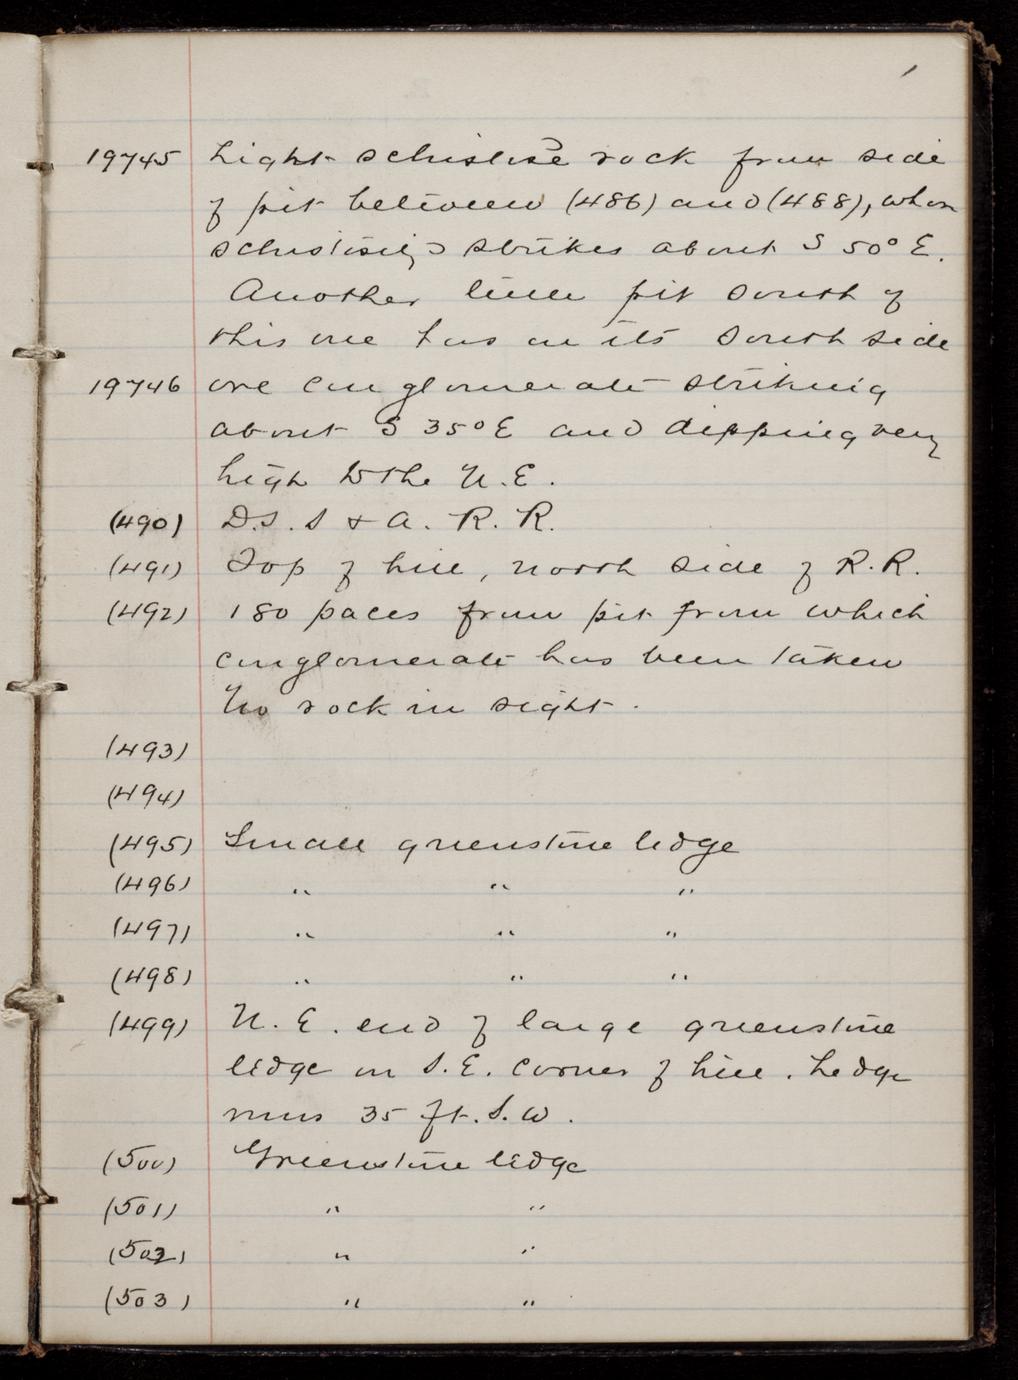 1
19745 Light schistose rock from side
of pit between (486) and (488), whose
schistosity strikes about S 50° E.
Another little pit south of
this one has on its south side
19746 ore conglomerate striking
about S 35° E and dipping very
high to the N.E.
(490) D.S.S & A. R.R.
(491) Top of hill, north side of R.R.
(492) 180 paces from pit from which
conglomerate has been taken
No rock in sight.
(493)
(494)
(495) Small greenstone ledge
(496) " " "
(497) " " "
(498) " " "
(499) N.E. end of large greenstone
ledge on S.E. corner of hill. Ledge
runs 35 ft. S.W.
(500) Greenstone ledge
(501) " "
(502) " "
(503) " "